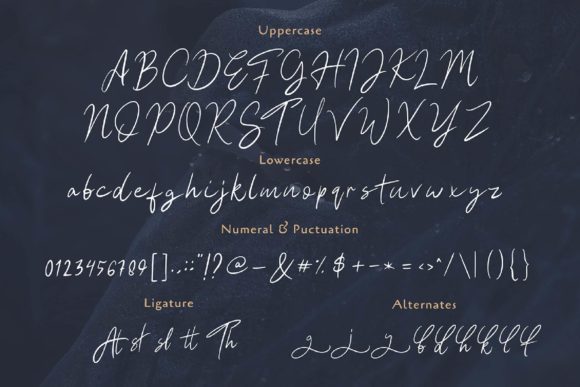 Uppercase
ABCDEFGHIJKLM
NOPQRSTUVWXYZ
Lowercase
abcdefghijklmnopqrstuvwxyz
Numeral & Puctuation
0123456789[].,:;"!?@-&#%$+-*=<>^/\|(){}
Ligature
At st sl tt Th
Alternates
g j y b d h k l f